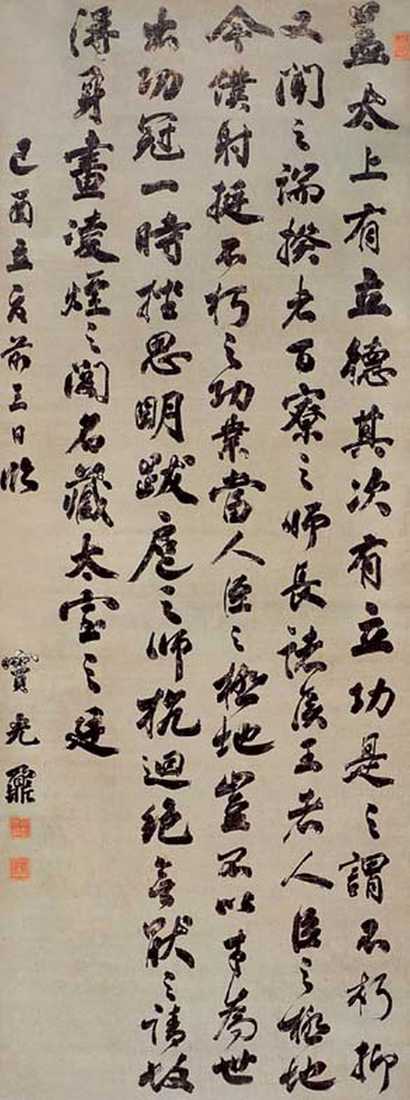 蓋太上有立德其次有立功是之謂不朽抑
又聞之端揆者百寮之師長諸侯王者人臣之極地
今僕射挺不朽之功業當人臣之極地豈不以才為世
出功冠一時挫思明跋扈之師抗迴紇無猒之請故
得身畫凌煙之閣名藏太室之廷
己酉立前三日臨
竇光鼐